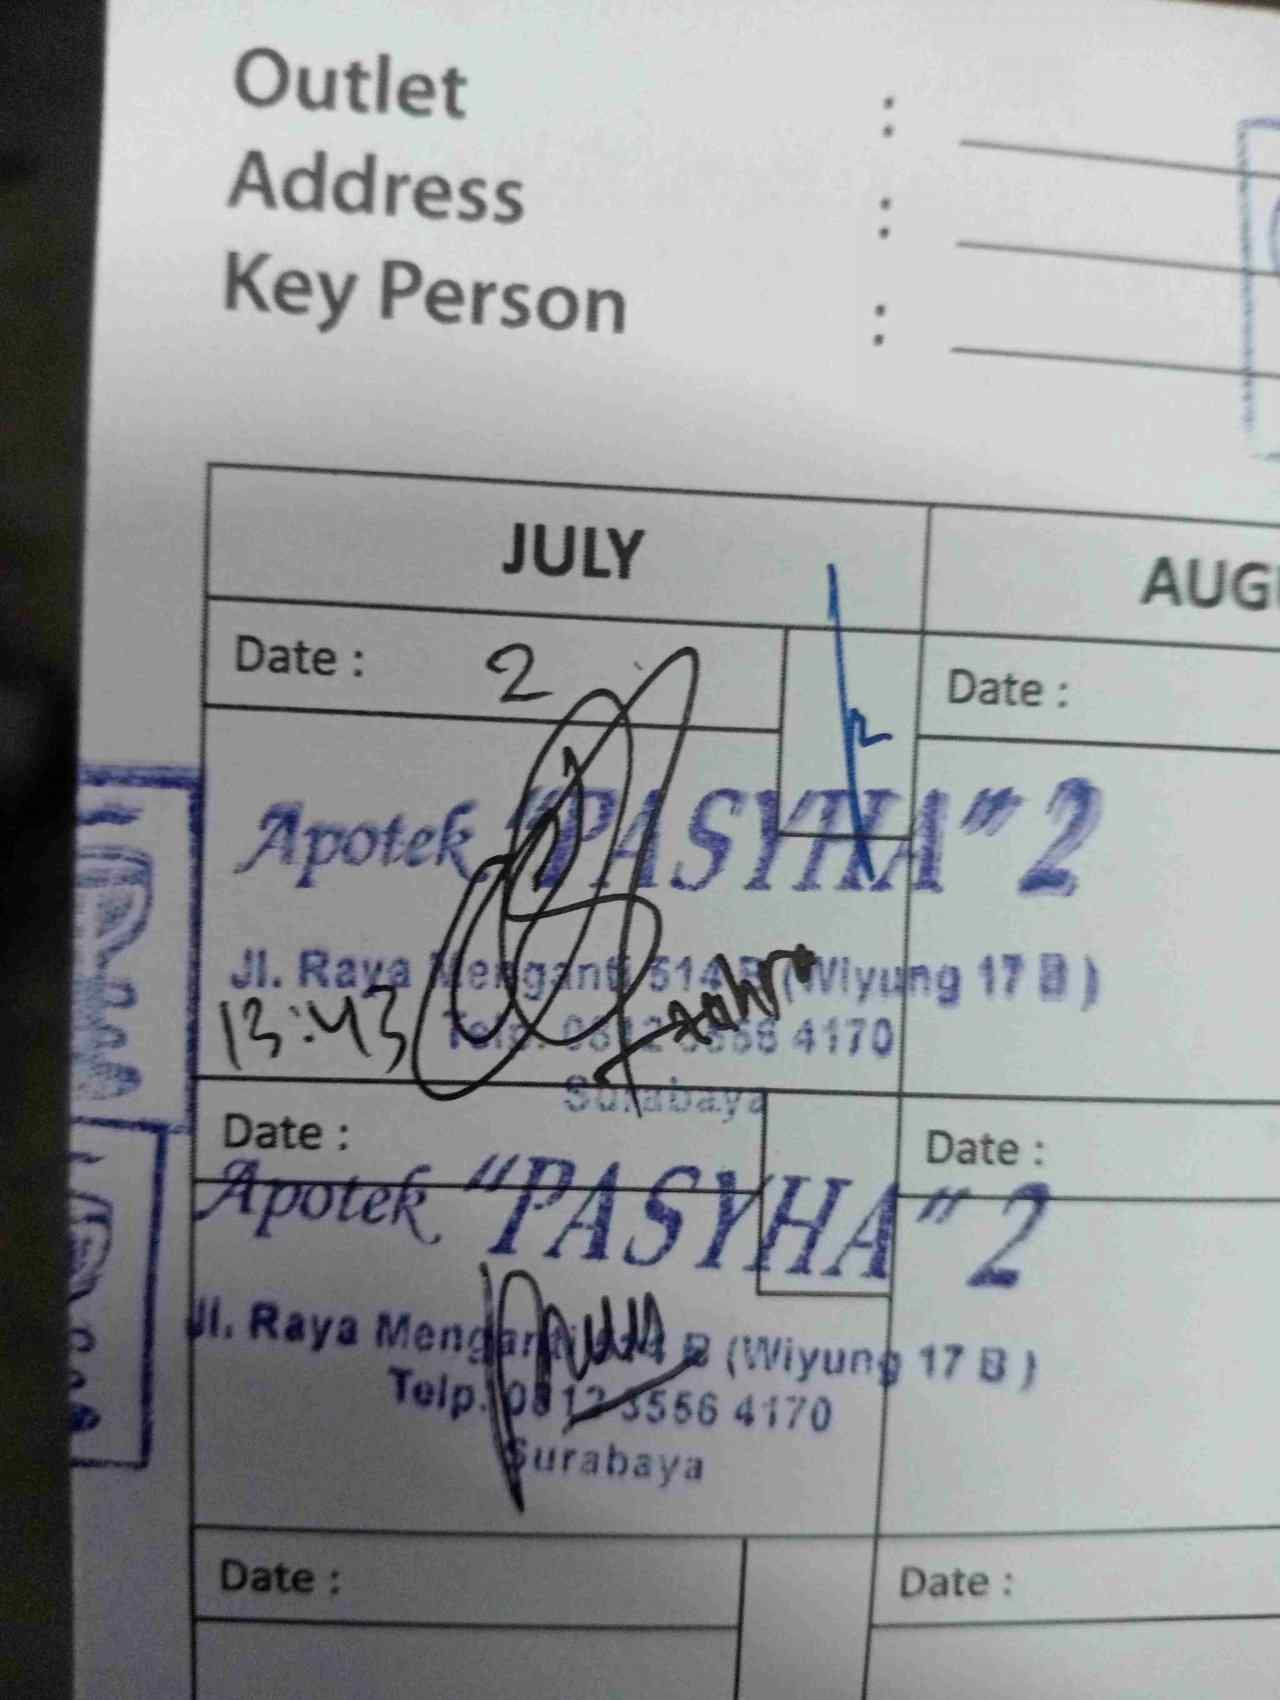 Outlet :
Address :
Key Person :
JULY
Date : 2
Date :
Apotek "PASYHA" 2
Jl. Raya Menganti 514 B (Wiyung 17 B )
13:43
Telp. 0812 3556 4170
Surabaya
Date :
Date :
Apotek "PASYHA" 2
Jl. Raya Menganti 514 B (Wiyung 17 B )
Telp. 0812 3556 4170
Surabaya
Date :
Date :